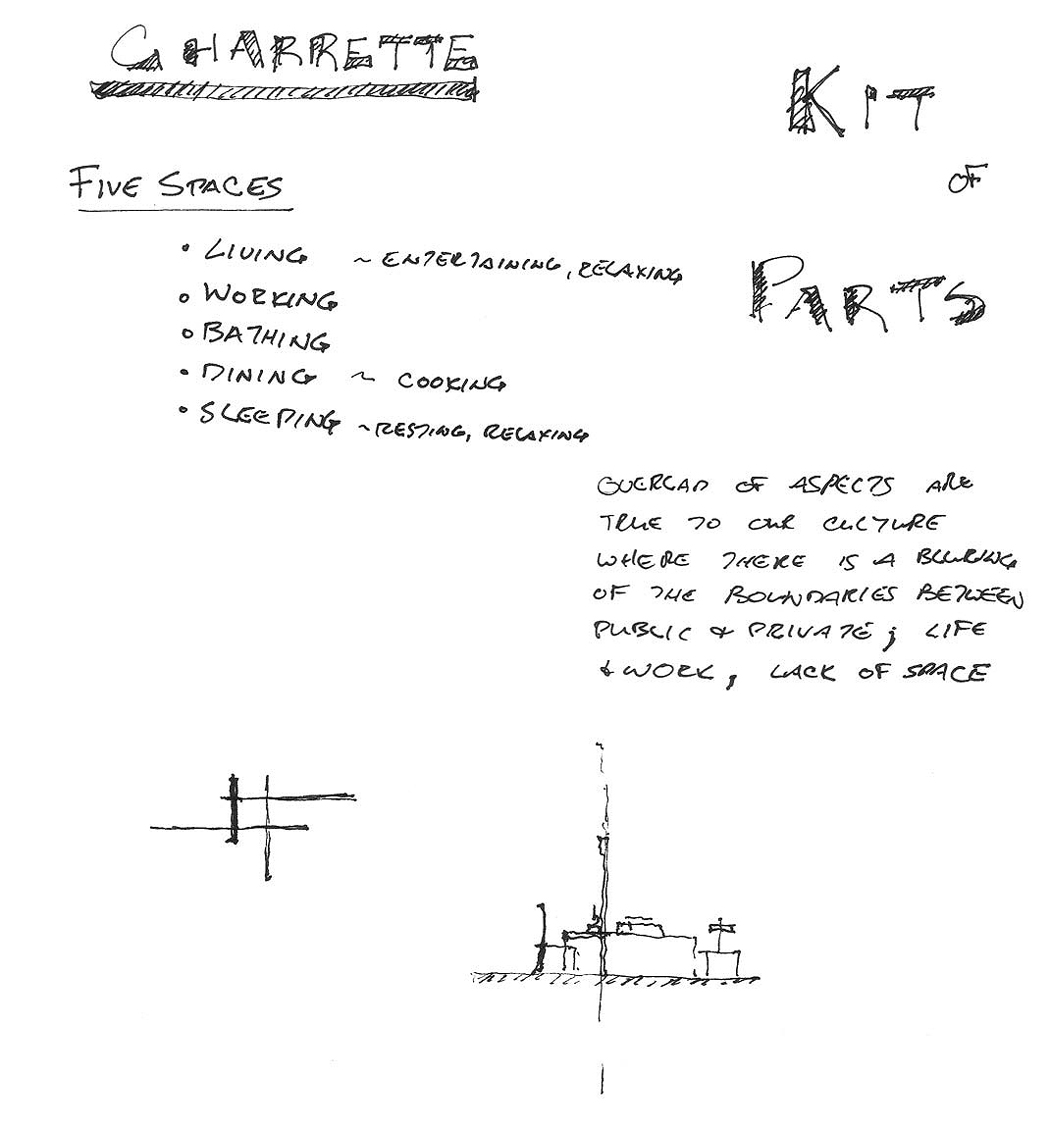 CHARRETTE
KIT
OF
PARTS
FIVE SPACES
• LIVING ~ ENTERTAINING, RELAXING
• WORKING
• BATHING
• DINING ~ COOKING
• SLEEPING ~ RESTING, RELAXING
OVERLAP OF ASPECTS ARE
TRUE TO OUR CULTURE
WHERE THERE IS A BLURING
OF THE BOUNDARIES BETWEEN
PUBLIC & PRIVATE; LIFE
& WORK; LACK OF SPACE